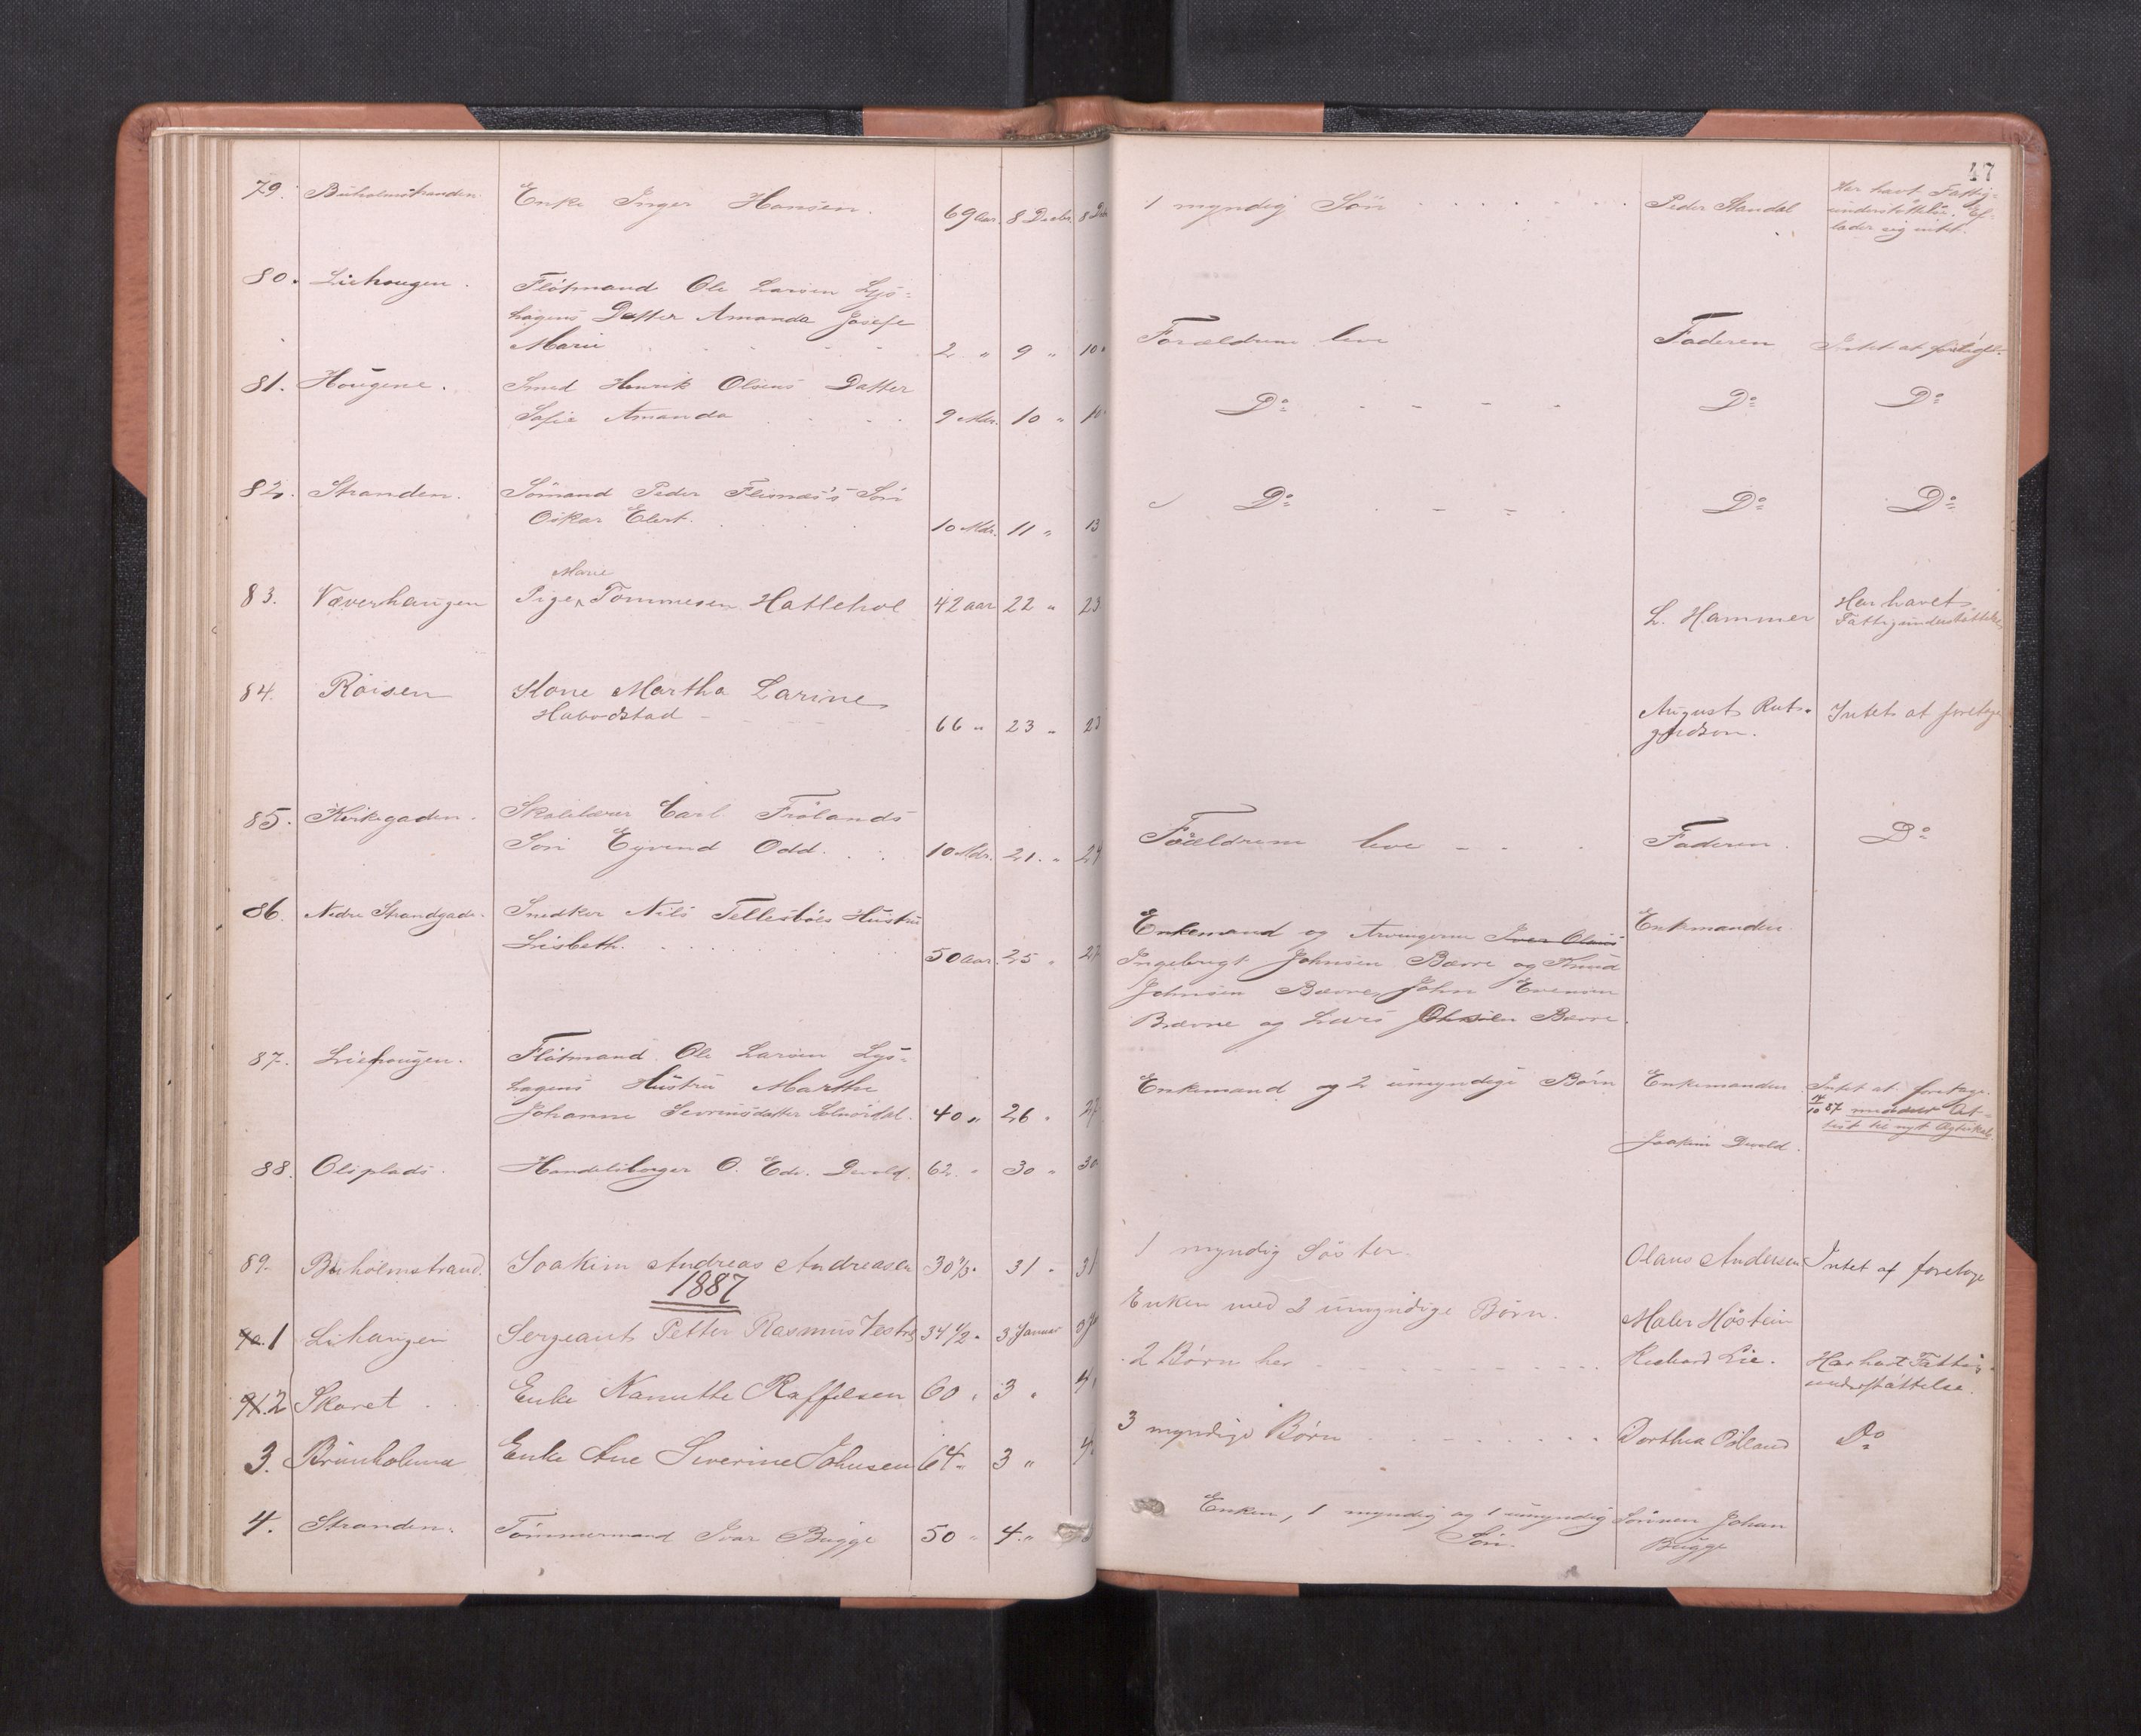 47
79. Buholmstranden. Enke Inger Hansen. 69 Aar. 8 Decbr. 8 Dec 1 myndig Søn Peder Standal Har havt Fattig-
understøttelse. Ef-
lader sig intet.
80. Liehougen. Fløtmand Ole Larsen Lys-
hagens Datter Amanda Josefe
Marie 2 " 9 " 10 Forældrene leve Faderen Intet at foretage.
81. Hougene. Smed Henrik Olsens Datter
Sofie Amanda 9 Mdr. 10 " 10 Do Do Do
82. Stranden. Sømand Peder Flemnæs's Søn
Oskar Elert. 10 Mdr. 11 " 13 Do Do Do
Marie
83. Væverhaugen Pige Tommesen Hattehol 42 aar 22 " 23 L. Hammer Har havet
Fattigunderstøttelse
84. Røisen Kone Martha Larine
Habodstad 66 " 23 " 23 August Rots-
gudson. Intet at foretage
85. Kirkegaden. Skolelærer Carl Frølands
Søn Eyvind Odd. 10 Mdr. 21. " 24 Foældrene leve Faderen. Do
86. Nedre Strandgade. Snedker Nils Tellesbøes Hustru
Lisbeth. 50 Aar. 25 " 27 Enkemand og Arvingerne Iver Olsens
Ingebrigt Johnsen Bærre og Knud
Johnsen Bærre, John Evensen
Bærre og Lars Olsen Bærre. Enkemanden.
87. Liehougen. Fløtmand Ole Larsen Lys-
hagens Hustru Marthe
Johanne Severinsdatter Solnørdal. 40 " 26 " 27 Enkemand og 2 umyndige Børn Enkemanden Intet at foretage.
14/10 87 meddelt At-
test til nyt Ægteskab.
88. Olsplads. Handelsborger O. Edv. Devold. 62 " 30 " 30 Joakim Devold.
89. Buholmstrand. Joakim Andreas Andreasen 30 31 " 31 1 myndig Søster Olaus Andersen Intet at foretage
1887
90. 1 Lihaugen Sergeant Petter Rasmus Vestre 34 1/2 " 3 Januar 3 Ja Enken med 2 umyndige Børn. Maler Høstein
91. 2 Skaret Enke Kanutte Raffelsen 60 " 3 " 4 2 Børn her Richard Lie. Har havt Fattig-
understøttelse.
3. Brunholmen Enke Ane Severine Johnsen 64 " 3 " 4 3 myndige Børn Dorthea Ødland Do
4. Stranden. Tømmermand Ivar Bugge 50 " 4. " Enken, 1 myndig og 1 umyndig
Søn. Sønnen Johan
Bugge